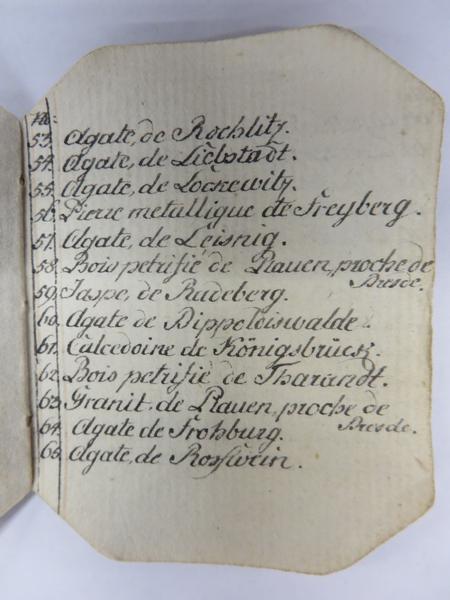 No:
53. Agate, de Rochlitz.
54. Agate, de Liebstadt.
55. Agate, de Lockewitz.
56. Pierre metallique de Freyberg.
57. Agate, de Leisnig.
58. Bois petrifié de Plauen, proche de
Dresde.
59. Jaspe, de Radeberg.
60. Agate de Dippoldiswalde.
61. Calcedoine de Königsbrück.
62. Bois petrifié de Tharandt.
63. Granit, de Plauen, proche de
Dresde.
64. Agate de Frohburg.
65. Agate, de Rosswein.